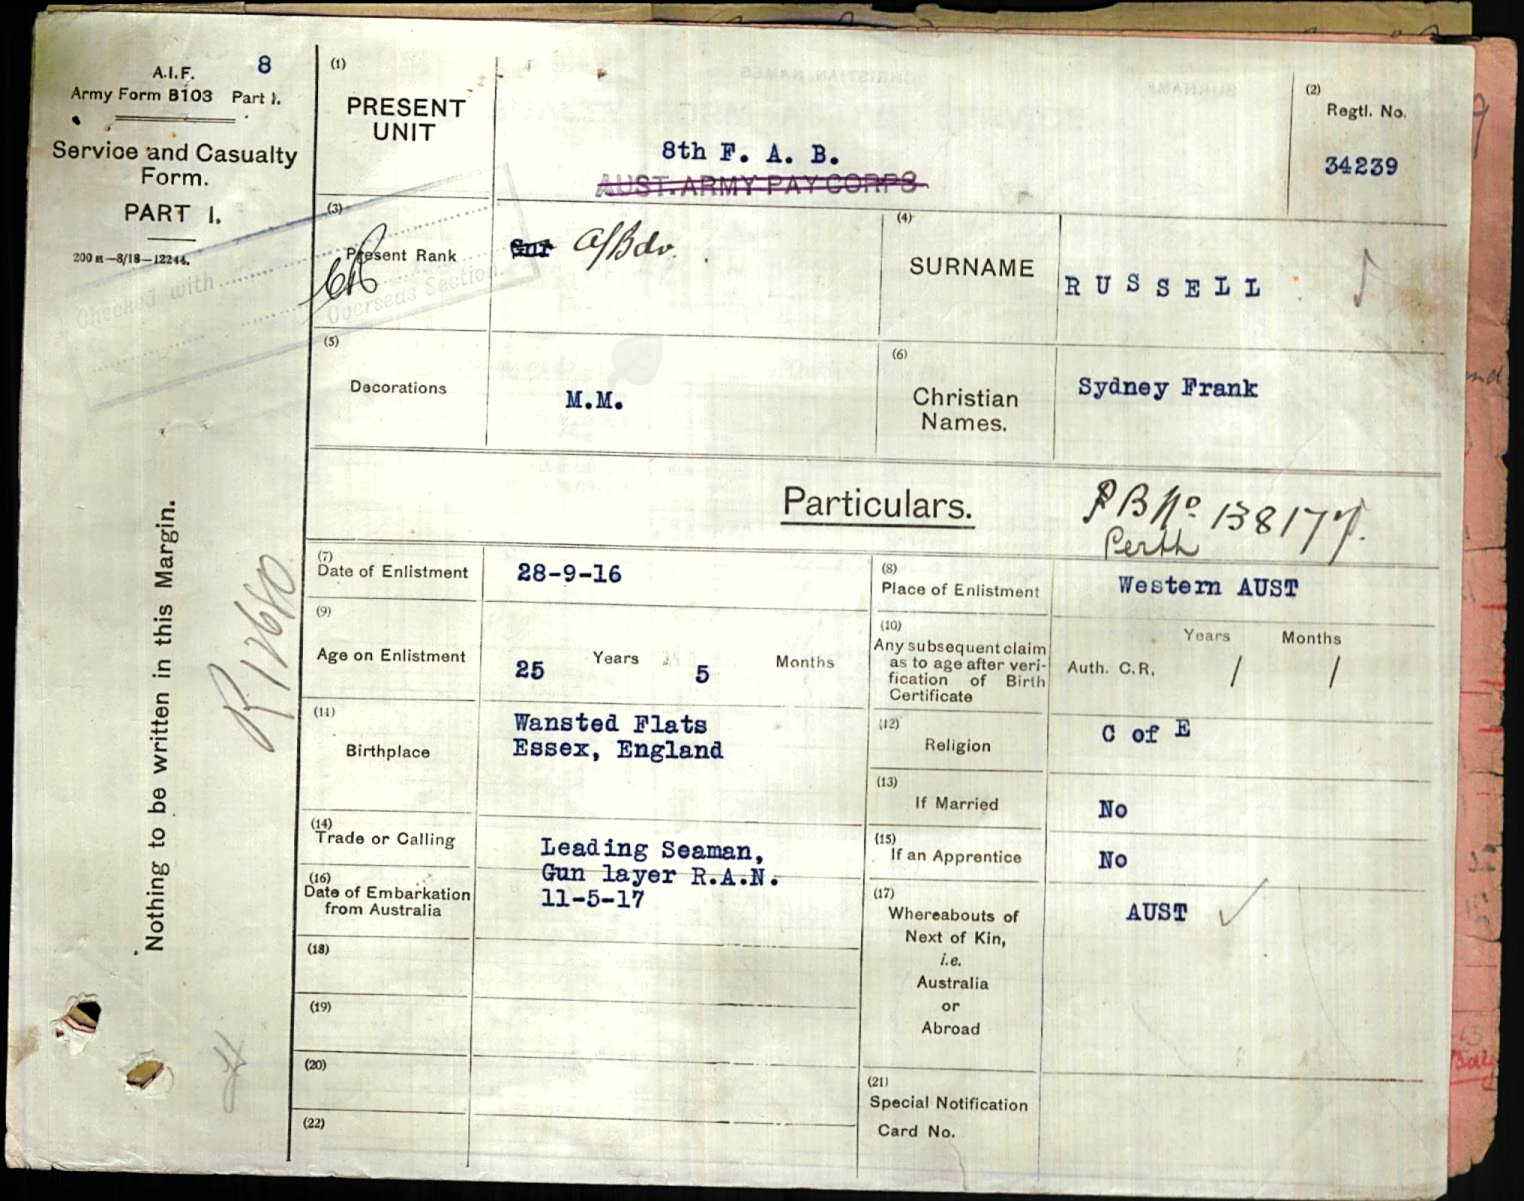 A.I.F. 8
Army Form B103 Part 1.
Service and Casualty
Form.
PART 1.
200 M—8/18—12244.
Checked with
Overseas Section
Nothing to be written in this Margin.
(1)
PRESENT
UNIT
8th F. A. B.
AUST. ARMY PAY CORPS
(2)
Regtl. No.
34239
(3)
Present Rank
Gnr A/Bdr.
(4)
SURNAME
RUSSELL
(5)
Decorations
M.M.
(6)
Christian
Names.
Sydney Frank
Particulars.
P B No 138177.
Perth
(7)
Date of Enlistment
28-9-16
(8)
Place of Enlistment
Western AUST
(9)
Age on Enlistment
25 Years 5 Months
(10)
Any subsequent claim
as to age after veri-
fication of Birth
Certificate
Years Months
Auth. C.R. / /
(11)
Birthplace
Wansted Flats
Essex, England
(12)
Religion
C of E
(13)
If Married
No
(14)
Trade or Calling
Leading Seaman,
Gun layer R.A.N.
(15)
If an Apprentice
No
(16)
Date of Embarkation
from Australia
11-5-17
(17)
Whereabouts of
Next of Kin,
i.e.
Australia
or
Abroad
AUST
(18)
(19)
(20)
(21)
Special Notification
Card No.
(22)